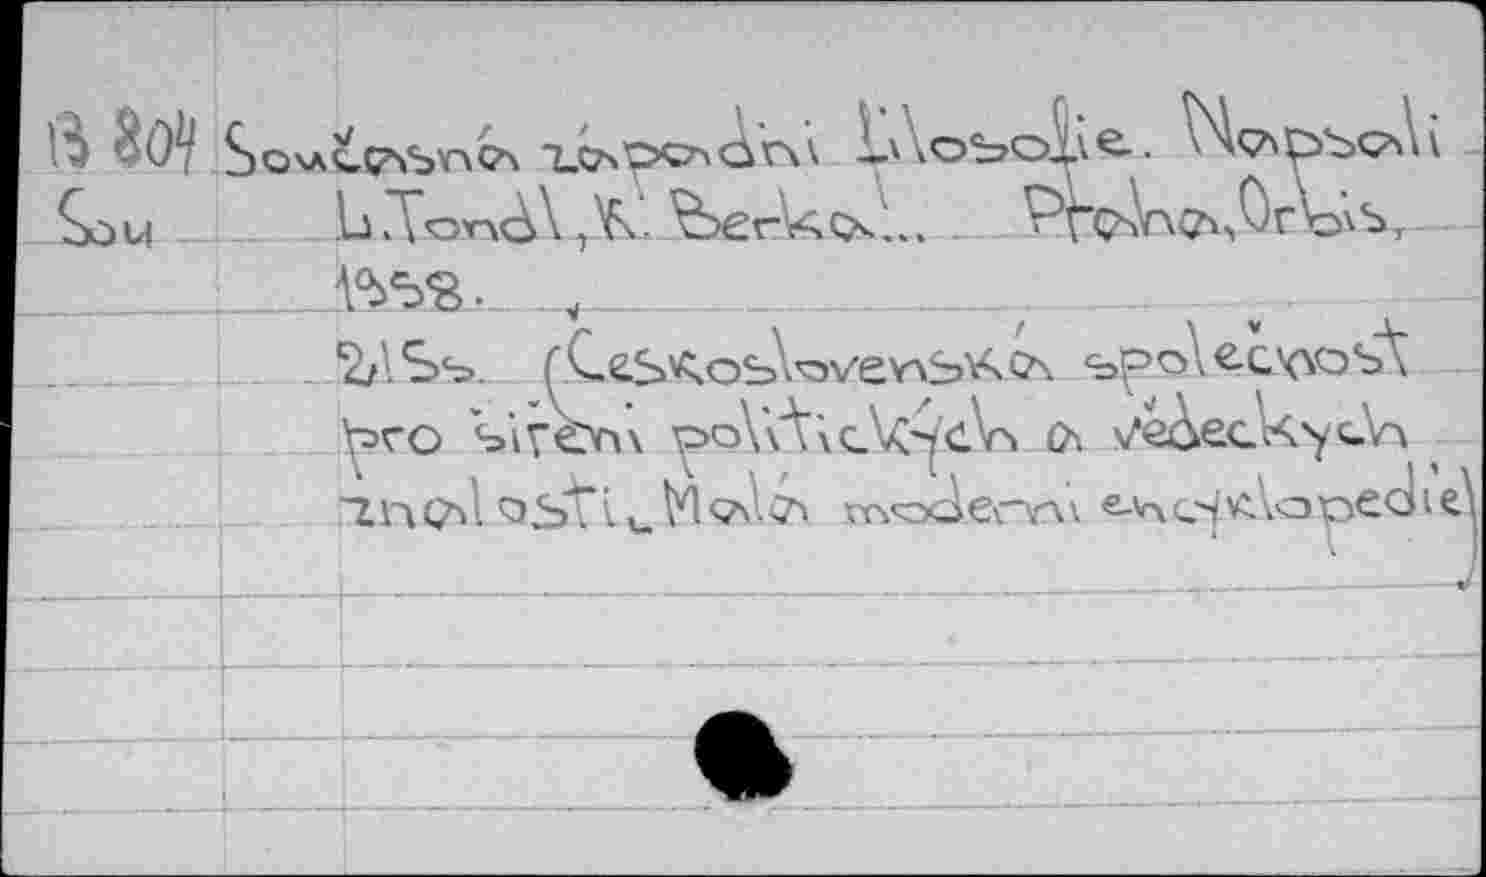 B 804 Současná západní filosofie. Napsali
Sou L.Tondl, K. Berka... Praha, Orbis,
1958.
215s. (Československá společnost
pro šíření politických a vědeckých
znalostí. Malá moderní encyklopedie)